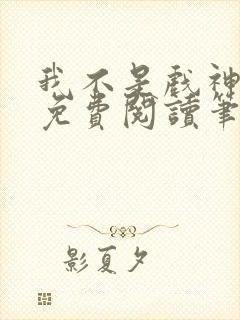 我不是戲神
免費閱讀筆
影夏夕